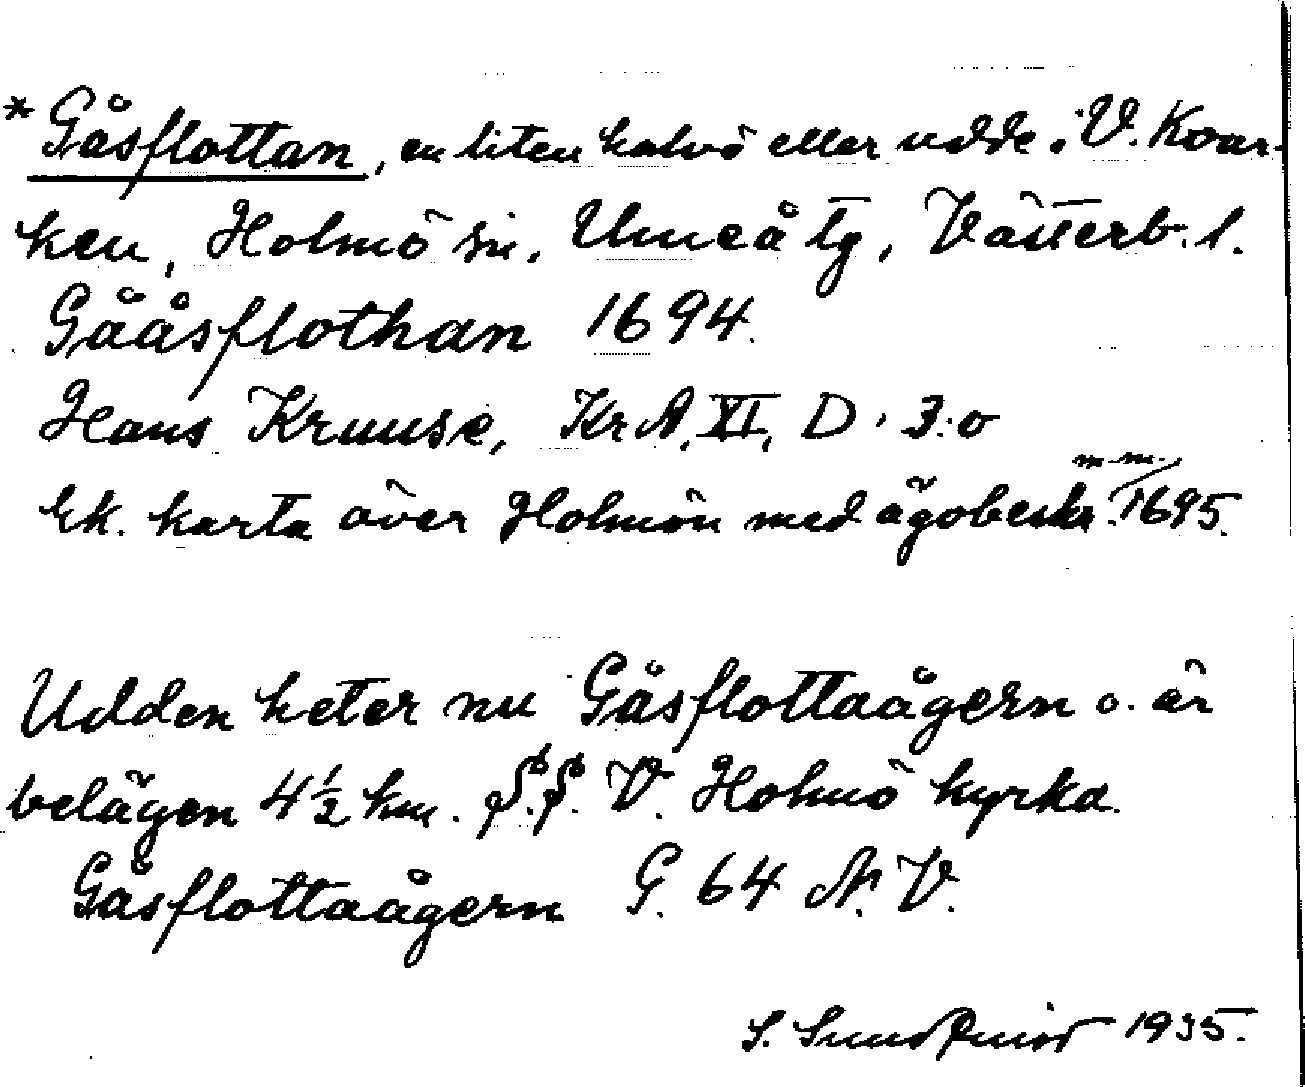 * Gåsflottan, en liten halvö eller udde i V. Kvar-
ken, Holmö sn, Umeå tg, Västerb. l.
Gååsflothan 1694.
Hans Kruuse, Kr.A. XI, D. 3:o
Ek. karta över Holmön med ägobeskr. m.m. 1695.
Udden heter nu Gåsflottaågern o. är
belägen 4½ km. S.S.V. Holmö kyrka.
Gåsflottaågern G. 64 N.V.
S. Sundquist 1935.